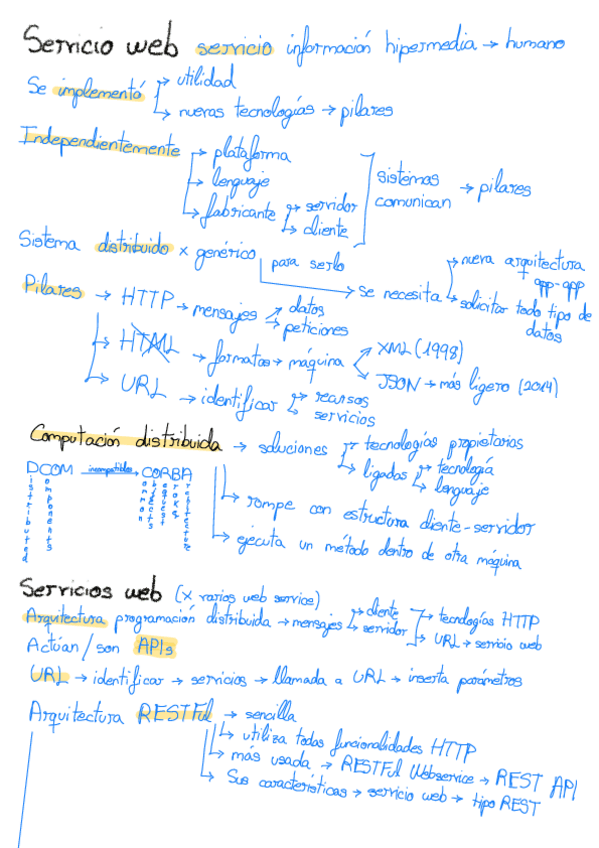 Servicio web servicio información hipermedia → humano
Se implementó → utilidad
→ nuevas tecnologías → pilares
Independientemente → plataforma
→ lenguaje
→ fabricante → servidor
→ cliente
sistemas comunican → pilares
Sistema distribuido x genérico
para serlo → se necesita → nueva arquitectura app-app
→ solicitar todo tipo de datos
Pilares → HTTP → mensajes → datos
→ peticiones
→ HTML → formatos → máquina → XML (1998)
→ JSON → más ligero (2014)
→ URL → identificar → recursos
→ servicios
Computación distribuida → soluciones → tecnologías propietarias
→ ligadas → tecnología
→ lenguaje
DCOM incompatibles → CORBA
istributed
omponents
ommon
bjects
equest
roker
rchitecture
→ rompe con estructura cliente-servidor
→ ejecuta un método dentro de otra máquina
Servicios web (x varios web service)
Arquitectura programación distribuida → mensajes → cliente
→ servidor
→ tecnologías HTTP
→ URL → servicio web
Actúan/son APIs
URL → identificar → servicios → llamada a URL → inserta parámetros
Arquitectura RESTFul → sencilla
→ utiliza todas funcionalidades HTTP
→ más usada → RESTFul Webservice → REST API
→ Sus características → servicio web → tipo REST